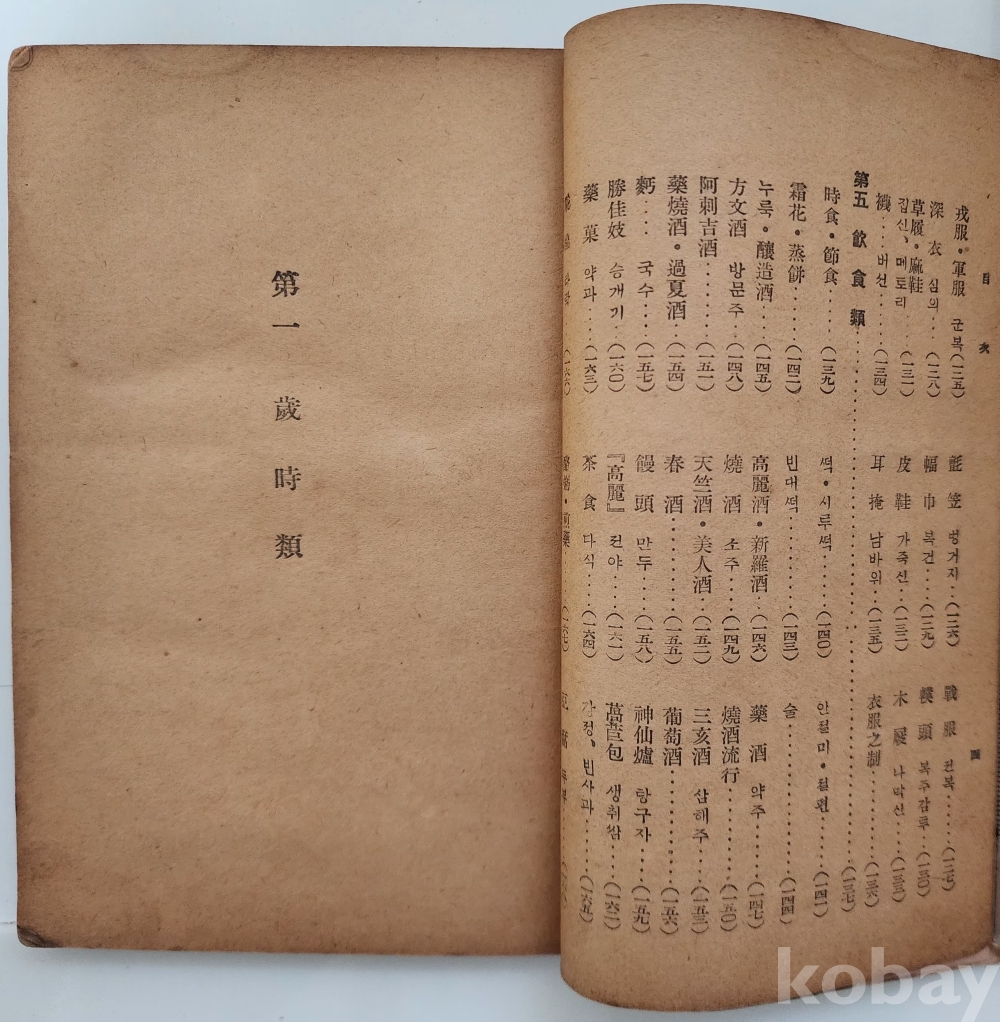 目次
戎服・軍服 군복(一二五) 氈笠 벙거지……(一二六) 戰服 전복……(一二七)
深衣 심의……(一二八) 幅巾 복건……(一二九) 幞頭 복주감투……(一三〇)
草履・麻鞋 집신、메토리……(一三一) 皮鞋 가죽신……(一三二) 木屐 나막신……(一三三)
襪……버선……(一三四) 耳掩 남바위……(一三五) 衣服之制……(一三六)
第五 飮食類……(一三七)
時食・節食……(一三九) 떡・시루떡……(一四〇) 인절미・절편……(一四一)
霜花・蒸餠……(一四二) 빈대떡……(一四三) 술……(一四四)
누룩・釀造酒……(一四五) 高麗酒・新羅酒……(一四六) 藥酒 약주……(一四七)
方文酒 방문주……(一四八) 燒酒 소주……(一四九) 燒酒流行……(一五〇)
阿刺吉酒……(一五一) 天竺酒・美人酒……(一五二) 三亥酒 삼해주……(一五三)
藥燒酒・過夏酒……(一五四) 春酒……(一五五) 葡萄酒……(一五六)
麪…… 국수……(一五七) 饅頭 만두……(一五八) 神仙爐 탕구자……(一五九)
勝佳妓 승개기……(一六〇) 『高麗』 컨야……(一六一) 萵苣包 생취쌈……(一六二)
藥菓 약과……(一六三) 茶食 다식……(一六四) 강정、빈사과……(一六五)
(一六六) (一六七)
四
第一 歲時類
kobay